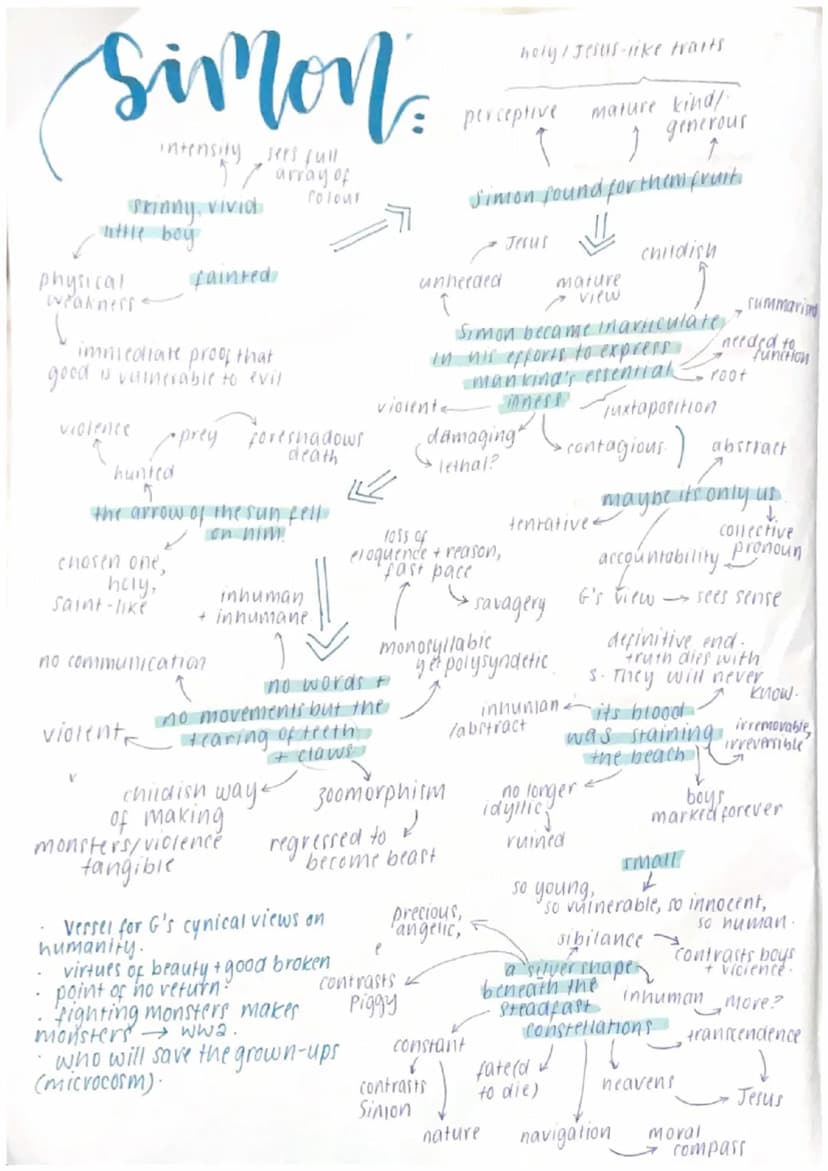 Simon:
holy/Jesus-like traits
perceptive
mature
kind/
generous
Simon found for them fruit
intensity
sees full
array of
colour
skinny, vivid
little boy
fainted
physical
weakness
immediate proof that
good is vulnerable to evil
Jesus
unheeded
mature
view
childish
Simon became inarticulate
in his efforts to express
mankind's essential
illness
summarised
needed to
function
root
juxtaposition
violent
damaging
lethal?
contagious
violence
prey
foreshadows
death
hunted
the arrow of the sun fell
on him.
chosen one,
holy,
saint-like
abstract
maybe its only us
tentative
collective
pronoun
accountability
G's view → sees sense
loss of
eloquence + reason,
fast pace
savagery
inhuman
+ inhumane
monosyllabic
yet polysyndetic
no communication
no words +
no movements but the
tearing of teeth
+ claws
violent
childish way
of making
monsters/violence
tangible
zoomorphism
regressed to
become beast
definitive end.
truth dies with
S. They will never
know.
inhuman
/abstract
its blood
was staining
the beach
irremovable,
irreversible
no longer
idyllic
ruined
boys
marked forever
small
so young,
so vulnerable, so innocent,
so human.
precious,
angelic,
e
sibilance
contrasts boys
+ violence.
contrasts
Piggy
a silver shape
beneath the
steadfast
constellations
inhuman
more?
transcendence
constant
contrasts
Simon
nature
fate(d
to die)
navigation
moral
compass
heavens
Jesus
· Vessel for G's cynical views on
humanity.
· virtues of beauty + good broken
· point of no return.
· fighting monsters makes
monsters → WW2.
· who will save the grown-ups
(microcosm).